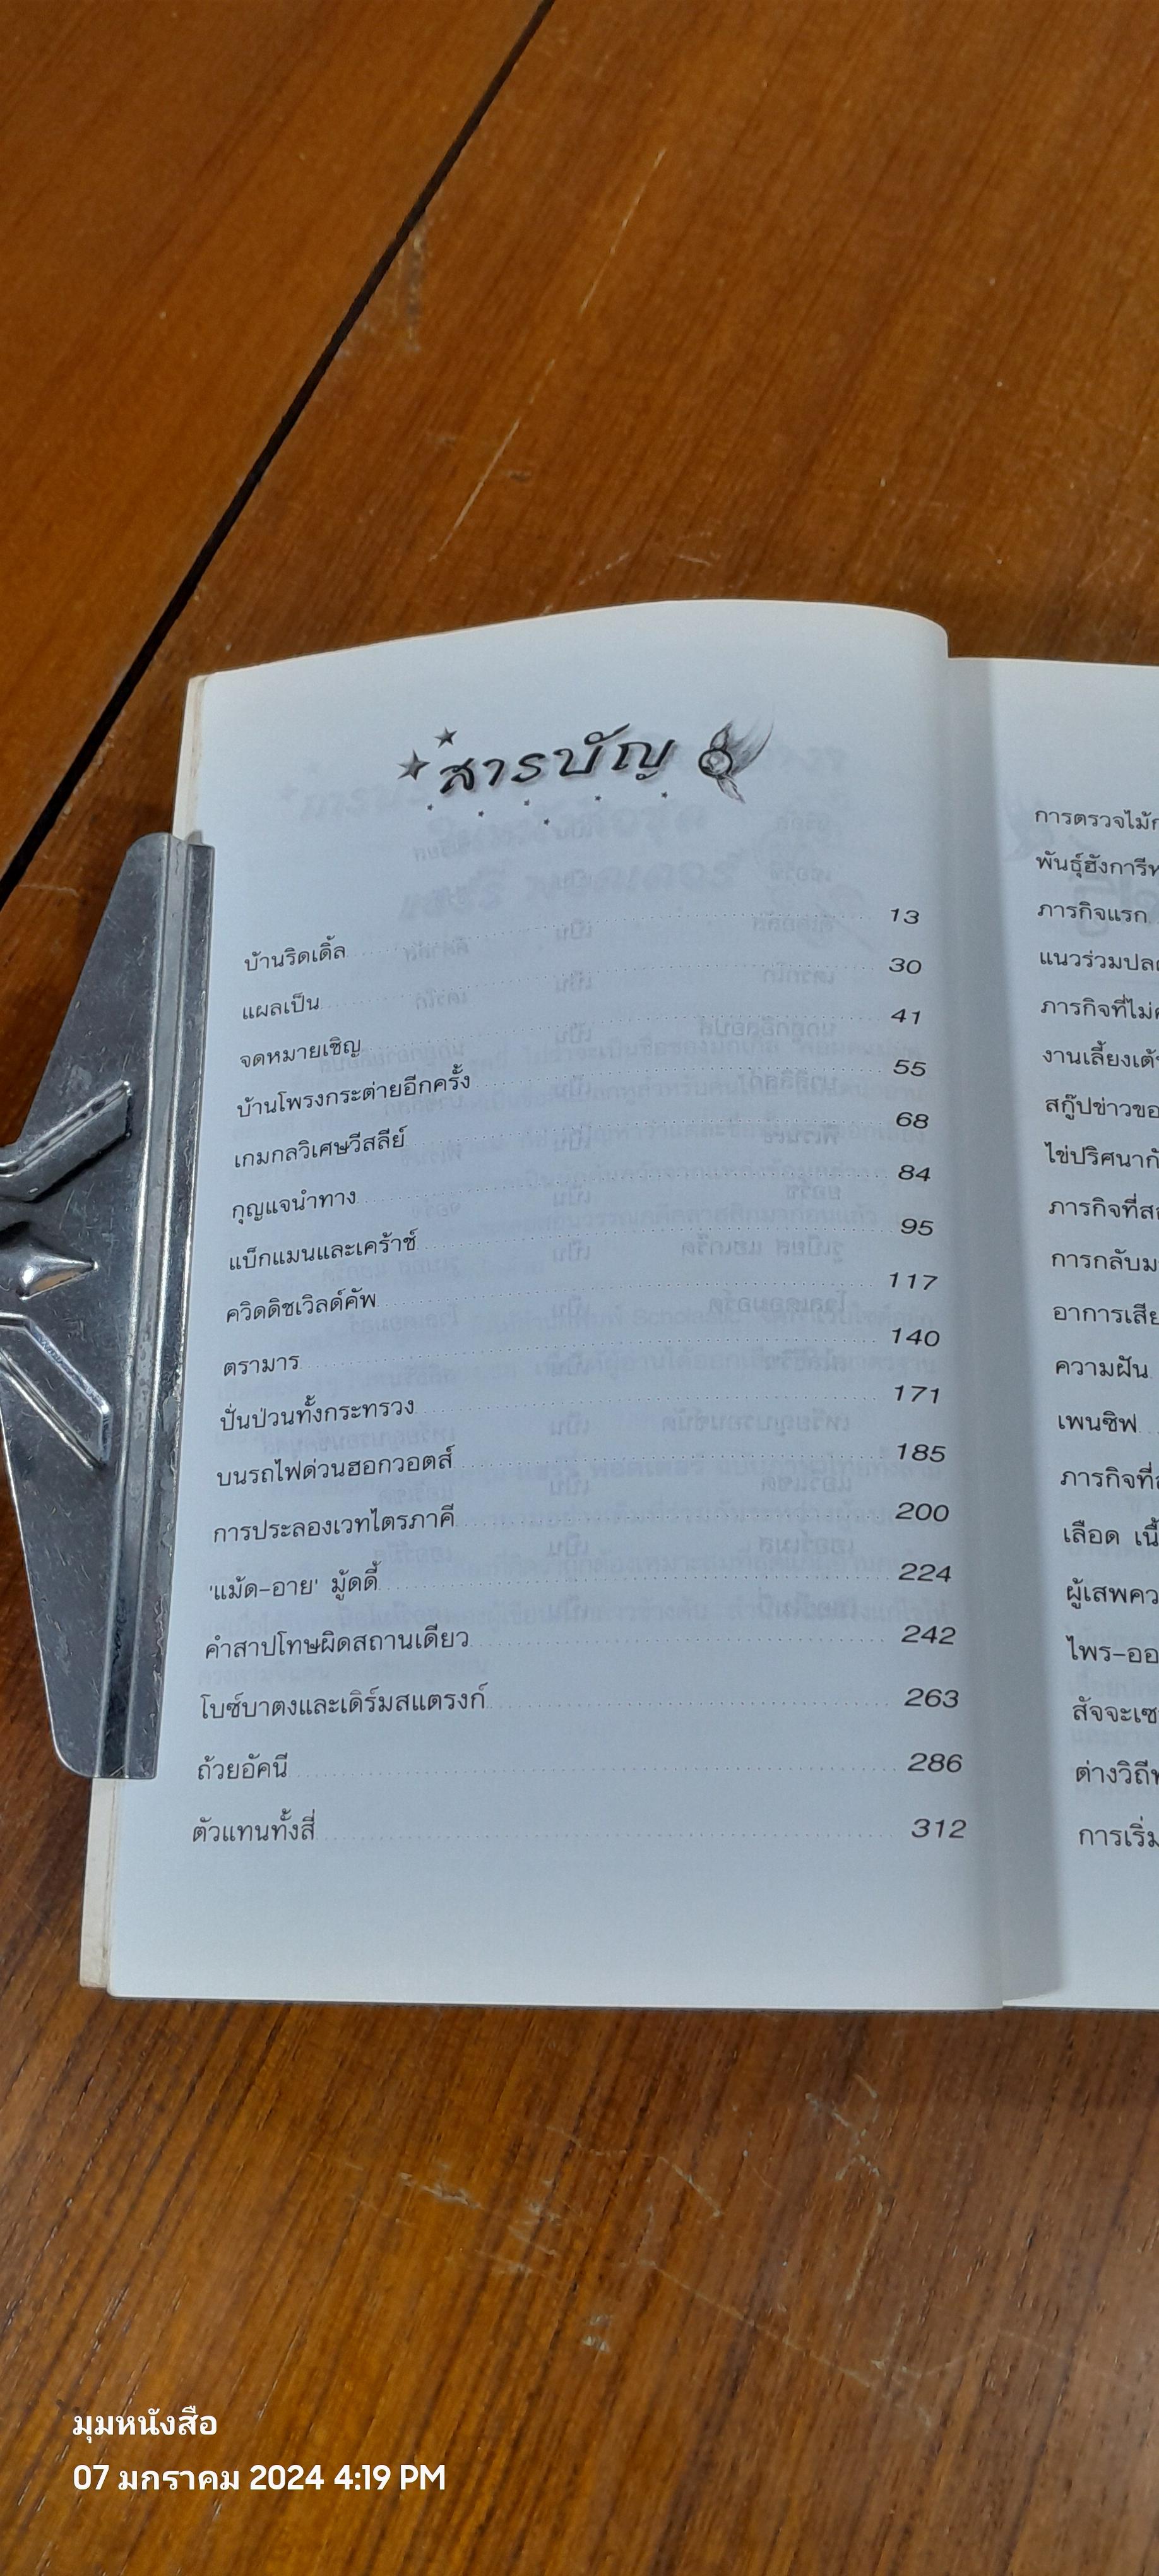 สารบัญ
บ้านริดเดิ้ล 13
แผลเป็น 30
จดหมายเชิญ 41
บ้านโพรงกระต่ายอีกครั้ง 55
เกมกลวิเศษวีสลีย์ 68
กุญแจนำทาง 84
แบ็กแมนและเคร้าช์ 95
ควิดดิชเวิลด์คัพ 117
ตรามาร 140
ปั่นป่วนทั้งกระทรวง 171
บนรถไฟด่วนฮอกวอตส์ 185
การประลองเวทไตรภาคี 200
'แม้ด-อาย' มู้ดดี้ 224
คำสาปโทษผิดสถานเดียว 242
โบซ์บาตงและเดิร์มสแตรงก์ 263
ถ้วยอัคนี 286
ตัวแทนทั้งสี่ 312
การตรวจไม้
พันธุ์ฮังการี
ภารกิจแรก
แนวร่วมปล
ภารกิจที่ไม่
งานเลี้ยงเต้
สกู๊ปข่าวขอ
ไข่ปริศนากั
ภารกิจที่ส
การกลับม
อาการเสีย
ความฝัน
เพนซิฟ
ภารกิจที่
เลือด เนื้
ผู้เสพคว
ไพร-ออ
สัจจะเซ
ต่างวิถี
การเริ่ม
มุมหนังสือ
07 มกราคม 2024 4:19 PM